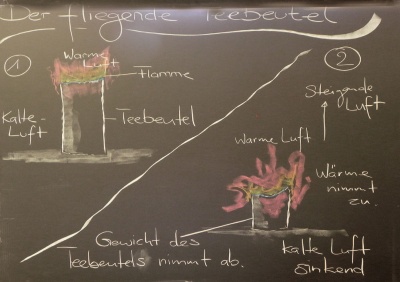 Der fliegende Teebeutel
1
Warme
Luft
Flamme
Kalte
Luft
Teebeutel
2
Steigende
Luft
Warme Luft
Wärme
nimmt
zu.
Gewicht des
Teebeutels nimmt ab.
Kalte Luft
sinkend